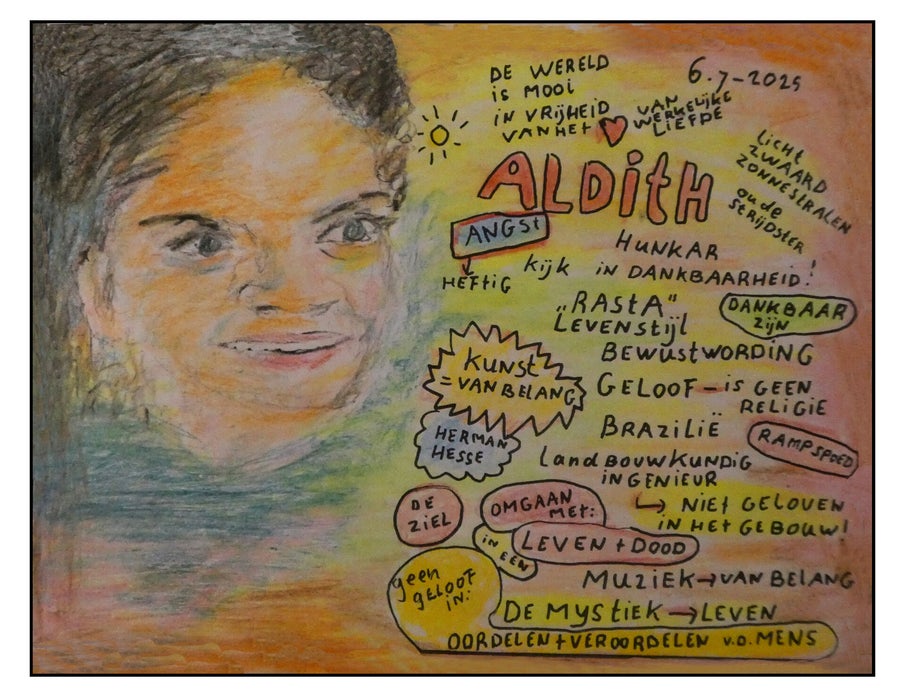 DE WERELD
is MOOI
IN VRijHEID
VAN HET
VAN
WERKELijKE
LIEFDE
6.7-2025
LiCHt
ZWAARD
ZONNESTRALEN
oude
StRijDStER
ALDitH
ANGSt
HEFtiG
HUNKAR
Kijk IN DANKBAARHEID!
„RAStA"
LEVENStijl
DANKBAAR
ZijN
BEWUSTWORDING
KUNST
= VAN BELANG
GELOOF – iS GEEN
RELiGiE
BRAZiLiË
RAMPSPOED
HERMAN
HESSE
LandBOUWKUNDiG
INGENiEUR
→ NiEt GELOVEN
IN HEt GEBOUW!
DE
ZIEL
OMGAAN
MEt:
IN EEN
LEVEN + DOOD
MUZiEK → VAN BELANG
geen
GELOOF
IN:
DE MYStiEK → LEVEN
OORDELEN + VEROORDELEN v.D. MENS